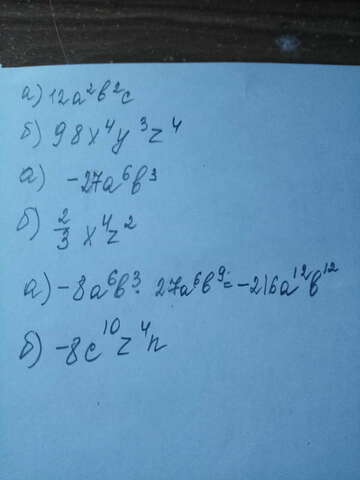 а) 12a²b²c
б) 98x⁴y³z⁴
а) -27a⁶b³
б) 2/3 x⁴z²
а) -8a⁶b³ · 27a⁶b⁹ = -216a¹²b¹²
б) -8c¹⁰z⁴n